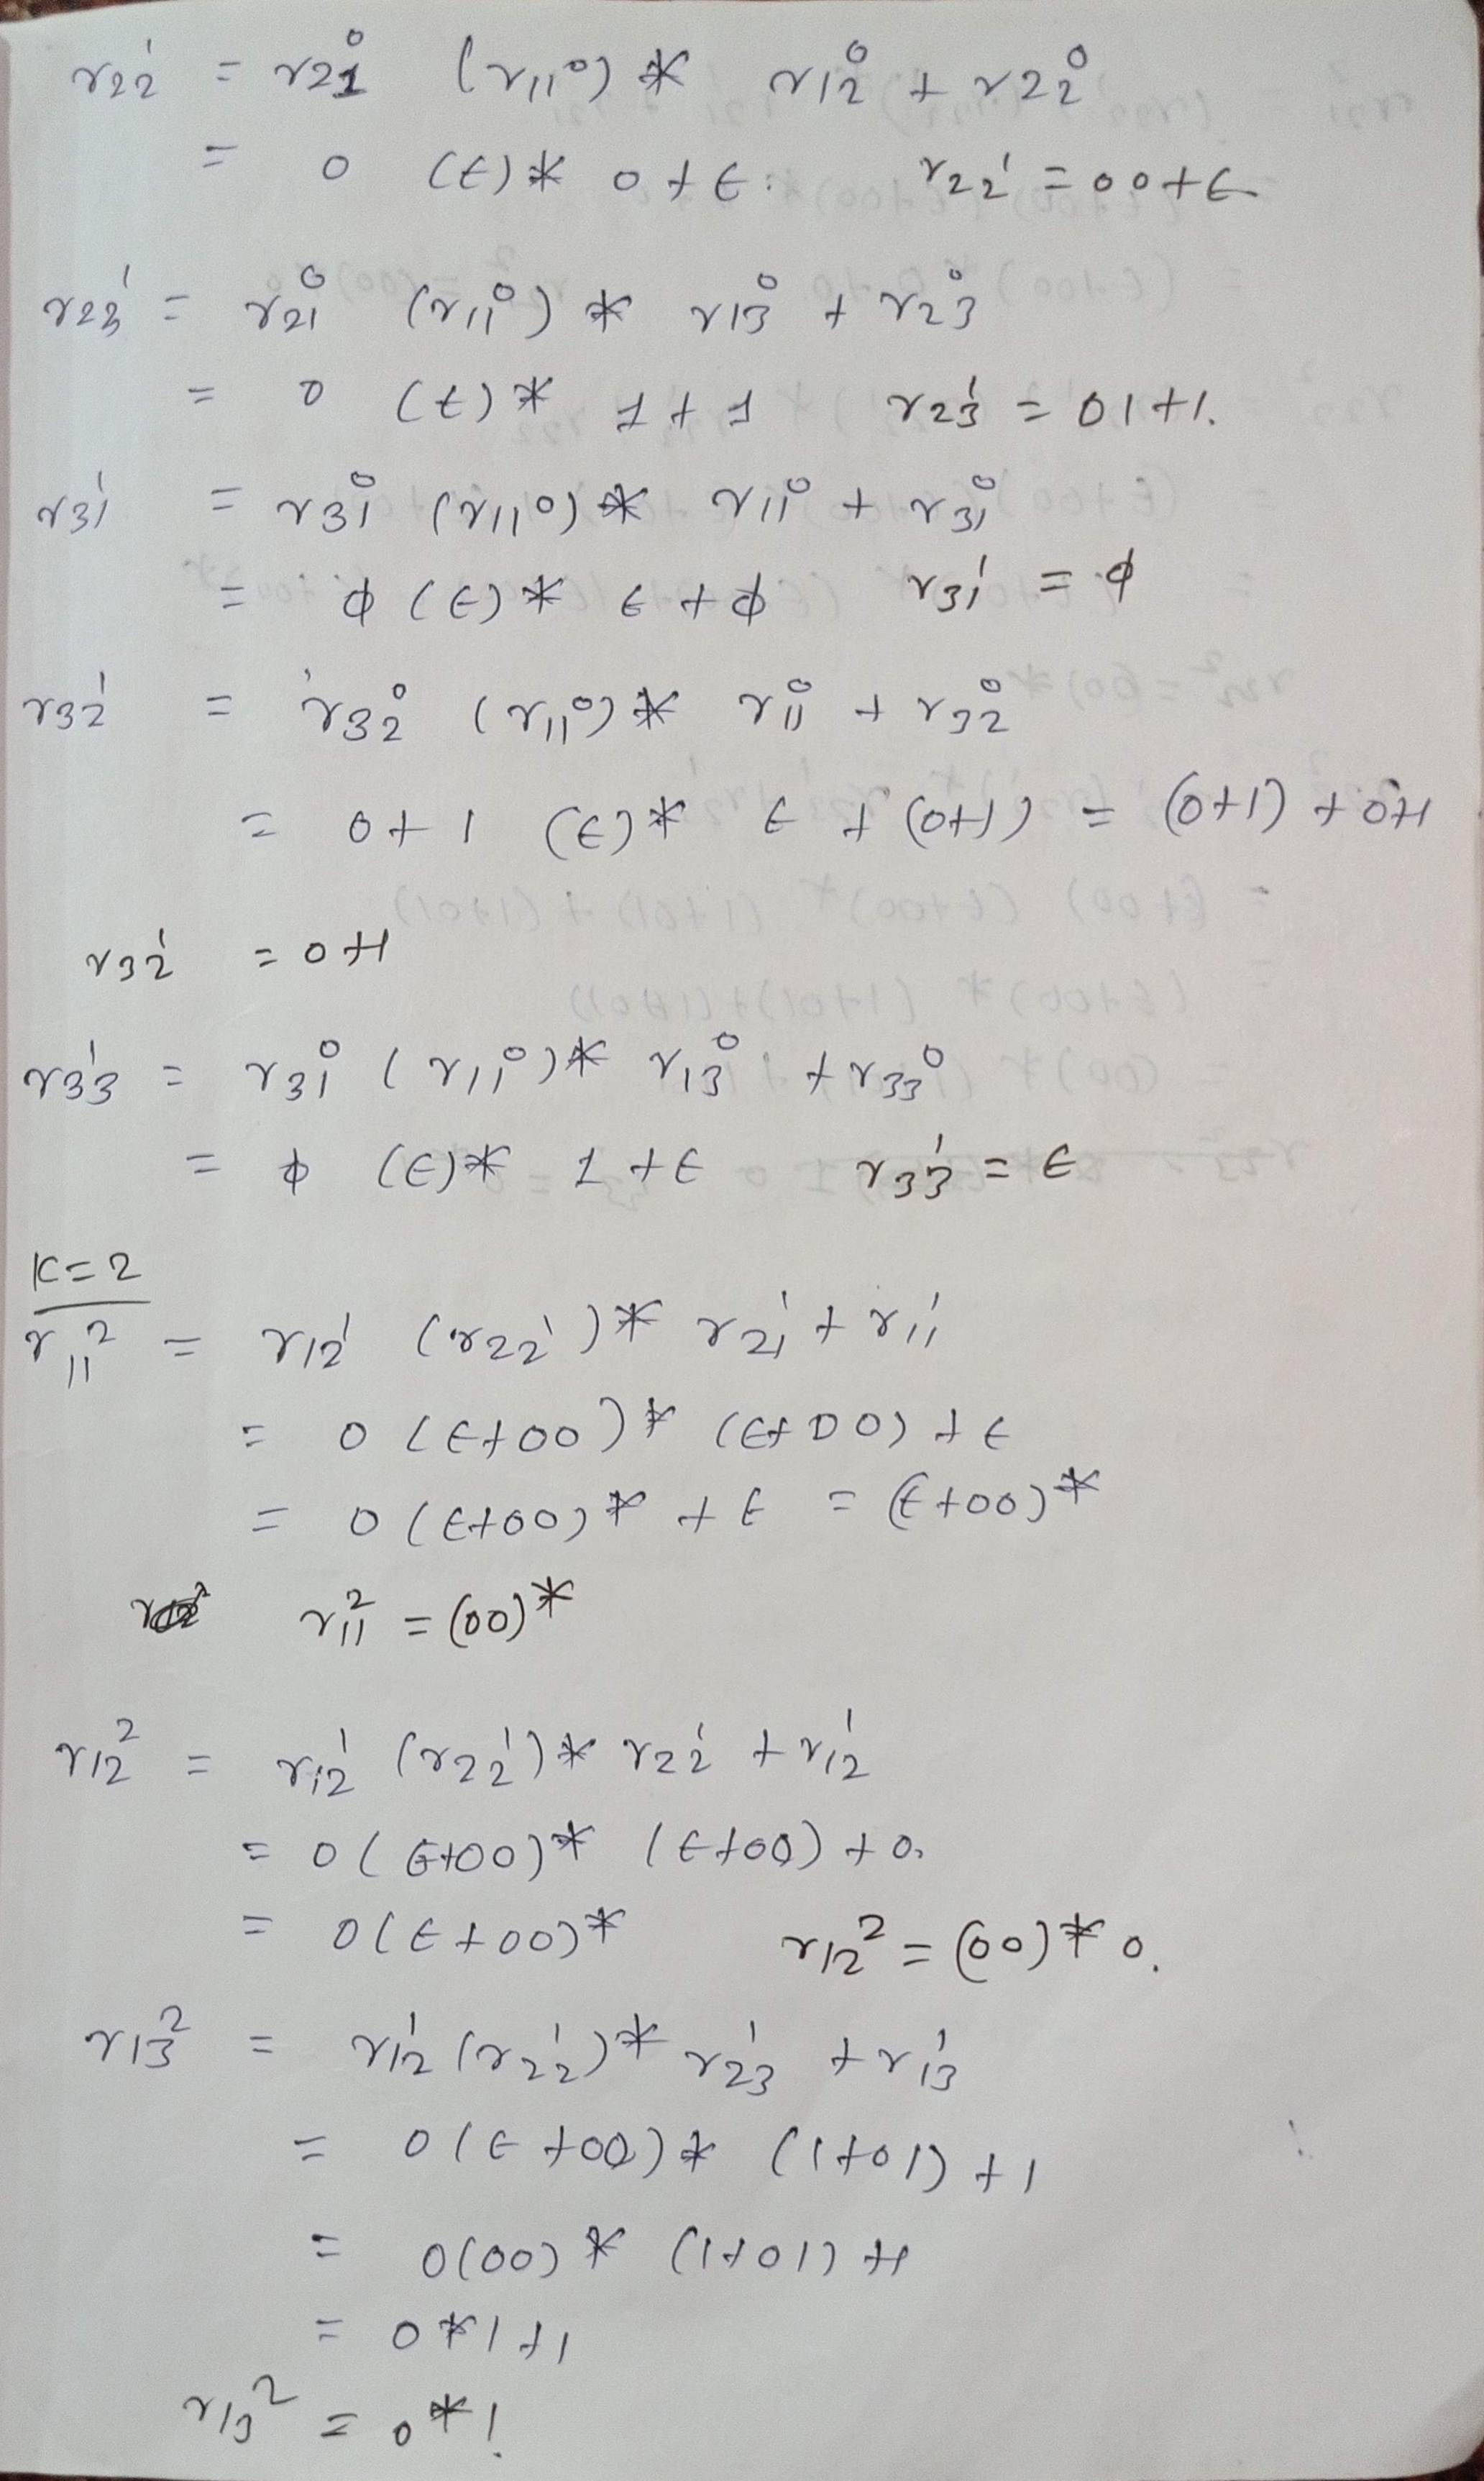 r₂₂¹ = r₂₁⁰ (r₁₁⁰)* r₁₂⁰ + r₂₂⁰
= 0 (ϵ)* 0 + ϵ. r₂₂¹ = 00+ϵ
r₂₃¹ = r₂₁⁰ (r₁₁⁰)* r₁₃⁰ + r₂₃⁰
= 0 (ϵ)* 1 + 1 r₂₃¹ = 01+1.
r₃₁¹ = r₃₁⁰ (r₁₁⁰)* r₁₁⁰ + r₃₁⁰
= ϕ (ϵ)* ϵ + ϕ r₃₁¹ = ϕ
r₃₂¹ = r₃₂⁰ (r₁₁⁰)* r₁₁⁰ + r₃₂⁰
= 0+1 (ϵ)* ϵ + (0+1) = (0+1) + 0+1
r₃₂¹ = 0+1
r₃₃¹ = r₃₁⁰ (r₁₁⁰)* r₁₃⁰ + r₃₃⁰
= ϕ (ϵ)* 1 + ϵ r₃₃¹ = ϵ
K=2
r₁₁² = r₁₂¹ (r₂₂¹)* r₂₁¹ + r₁₁¹
= 0 (ϵ+00)* (ϵ+00) + ϵ
= 0 (ϵ+00)* + ϵ = (ϵ+00)*
r₁₁² = (00)*
r₁₂² = r₁₂¹ (r₂₂¹)* r₂₂¹ + r₁₂¹
= 0(ϵ+00)* (ϵ+00) + 0.
= 0(ϵ+00)* r₁₂² = (00)* 0.
r₁₃² = r₁₂¹ (r₂₂¹)* r₂₃¹ + r₁₃¹
= 0(ϵ+00)* (1+01) + 1
= 0(00)* (1+01) +1
= 0*1+1
r₁₃² = 0*1.